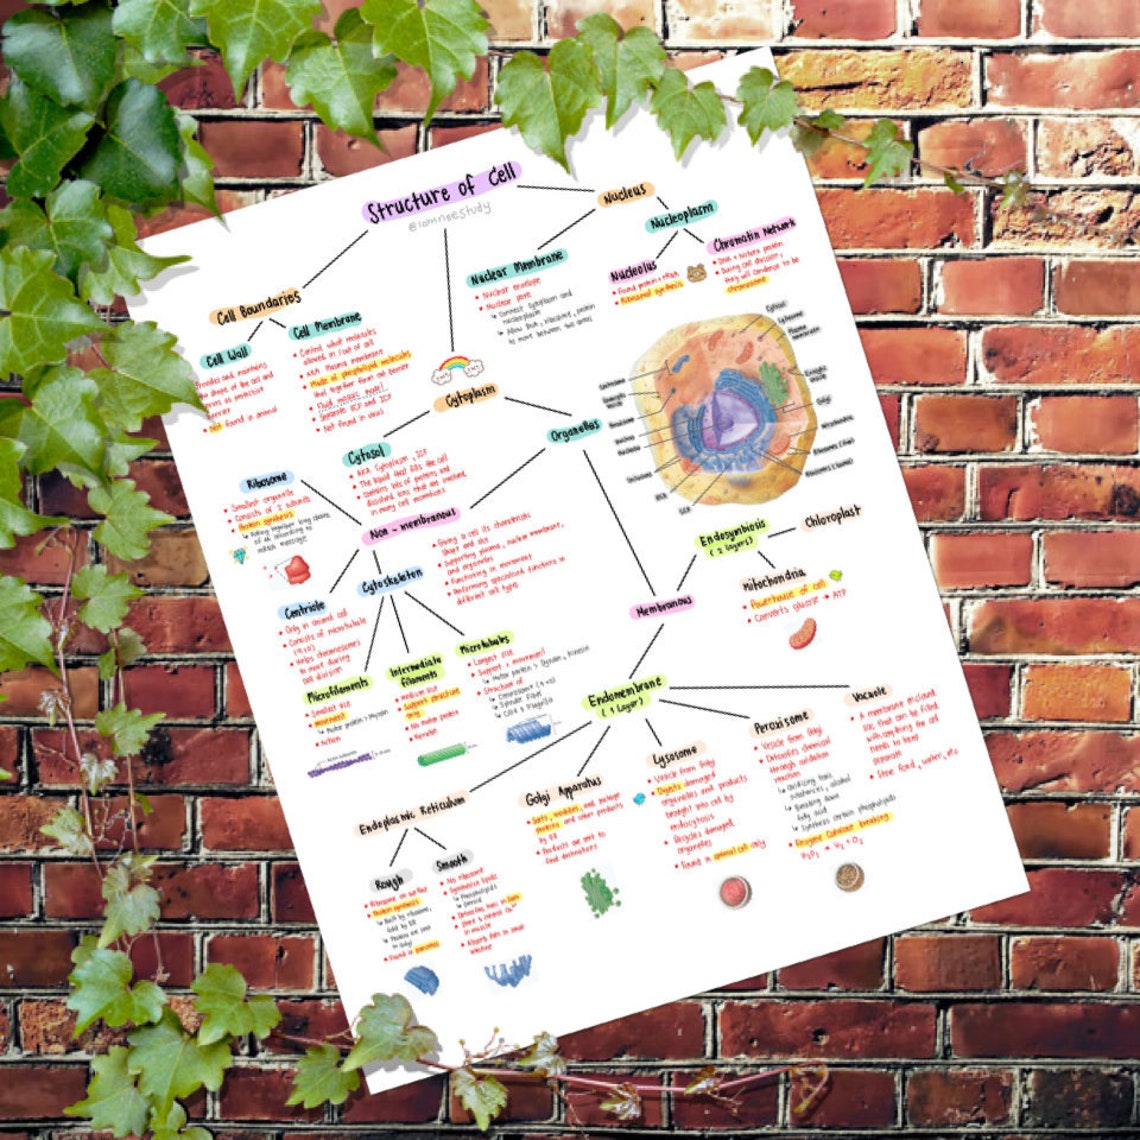 Structure of Cell
@iomnoeStudy
Nucleus
Nucleoplasm
Chromatin Network
• DNA + histone protein
• During cell division,
they will condense to be
chromosome
Nucleolus
• Found protein + rRNA
• Ribosomal synthesis
Nuclear Membrane
• Nuclear envelope
• Nuclear pore
↳ Connect cytoplasm and
nucleoplasm
↳ Allow RNA, ribosome, protein
to move between two areas
Cell Boundaries
Cell Wall
Provides and maintains
the shape of the cell and
serves as protective
barrier
• Not found in animal
Cell Membrane
• Control what molecules
allowed in / out of cell
• AKA Plasma membrane
• Made of phospholipid molecules
that together form cell barrier
• Fluid mosaic model
• Separate ECF and ICF
• Not found in virus
Cytoplasm
Cytosol
• AKA Cytoplasm, ICF
• The liquid that fills the cell
• Contains lots of proteins and
dissolved ions that are involved
in many cell reactions
Organelles
Non-membranous
Ribosome
• Smallest organelle
• Consists of 2 subunits
• Protein synthesis
of AA according to
mRNA message
Centriole
• Only in animal cell
• Consists of microtubule
(9+0)
• Helps chromosomes
to move during
cell division
Cytoskeleton
• Giving a cell its characteristic
shape and size
• Supporting plasma, nuclear membrane,
and organelles
• Functioning in movement
• Performing specialized functions in
different cell types
Microfilaments
• Smallest size
• Movement
↳ Motor protein > Myosin
• Actin
Intermediate
filaments
• Medium size
• Support structure
only
• No motor protein
• Keratin
Microtubules
• Longest size
• Support + movement
↳ Motor protein > Dynein, Kinesin
• Structure of
↳ Centrosome (9+0)
↳ Spindle fiber
↳ Cilia & Flagella
Membranous
Endosymbiosis
(2 layers)
Chloroplast
Mitochondria
• Powerhouse of cell
• Converts glucose → ATP
Endomembrane
(1 Layer)
Vacuole
• A membrane enclosed
sac that can be filled
with anything the cell
needs to keep
separate
• Store food, water, etc
Peroxisome
• Vesicle from Golgi
• Detoxifies chemical
through oxidation
reaction
↳ Oxidizing toxic
substances, alcohol
↳ Breaking down
fatty acid
↳ Synthesis certain phospholipids
• Enzyme Catalase breaking
Lysosome
• Vesicle from Golgi
• Digests damaged
organelles and products
brought into cell by
endocytosis
• Recycles damaged
organelles
• Found in animal cell only
Golgi Apparatus
• Sorts, modifies, and package
proteins and other products
by ER
• Products are sent to
final destinations
Endoplasmic Reticulum
Rough
• Ribosome on surface
• Protein synthesis
↳ Built by ribosome,
fold by ER
↳ Proteins are sent
to Golgi
• Found in pancreas
Smooth
• No ribosome
• Synthesize lipids
↳ Phospholipids
↳ Steroid
• Detoxifies toxic in liver
• Store & control Ca²⁺
in muscle
• Absorb fats in small
intestine
Cytosol
Lysosome
Plasma
membrane
Golgi
Mitochondria
Ribosomes (free)
Ribosomes (bound)
SER
RER